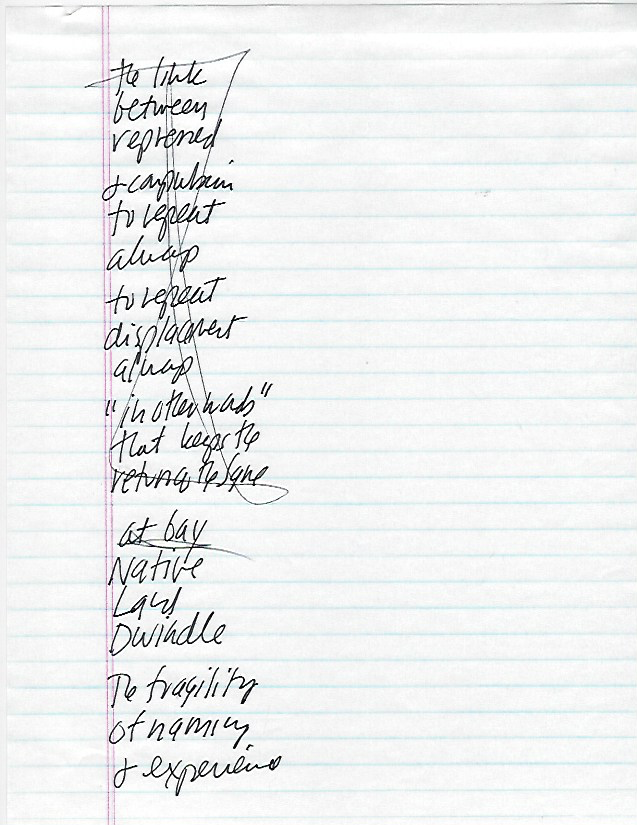 the link
between
repressed
& compulsion
to repeat
always
to repeat
displacement
always
"in other words"
that keeps the
return of the same
at bay
Native
Land
Dwindle
The fragility
of naming
& experience